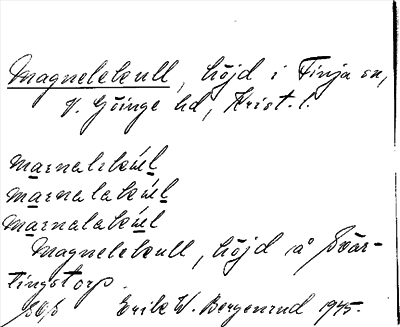 Magnelekull, höjd i Finja sn,
V. Göinge hd, Krist. l.
marnalekúl
marnalakúl
marnalakúl
Magnelekull, höjd å Svär-
tingstorp.
Erik W. Bergenrud 1945.